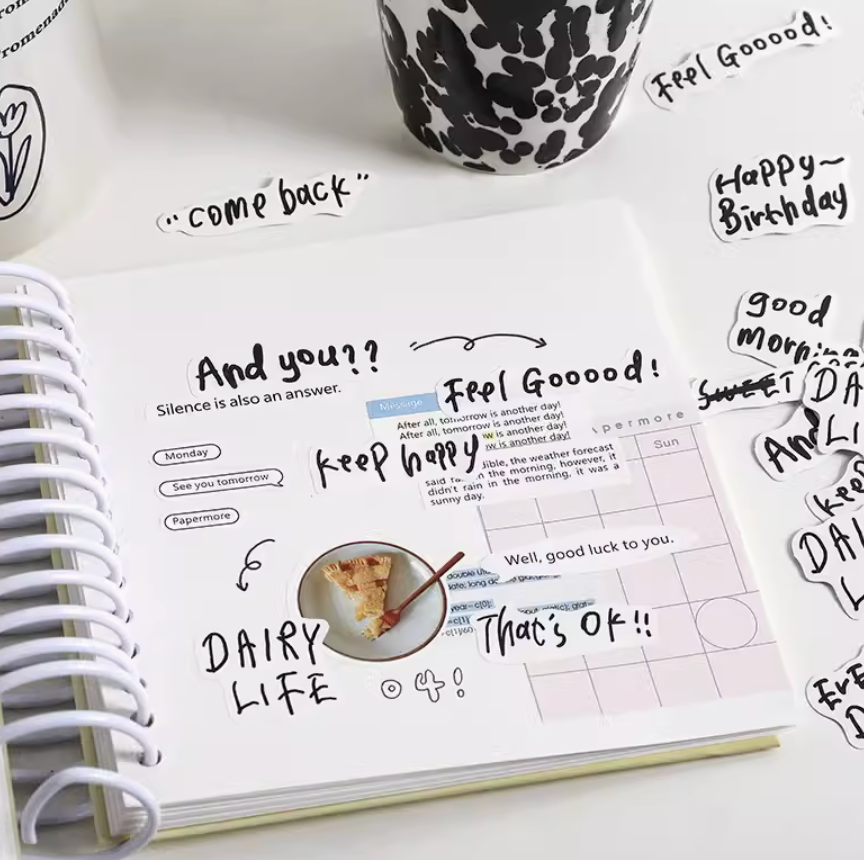 Promenade
Feel Gooood!
Happy~
Birthday
"come back"
good
morning
And you??
Feel Gooood!
Silence is also an answer.
Message
SWEET
DA
LI
After all, tomorrow is another day!
After all, tomorrow is another day!
w is another day!
w is another day!
permore
Sun
Monday
keep happy
the weather forecast
said in the morning, however, it
didn't rain in the morning, it was a
sunny day.
And
See you tomorrow
keep
Papermore
Well, good luck to you.
DAI
L
That's OK!!
DAIRY
LIFE
04!
EvE
D